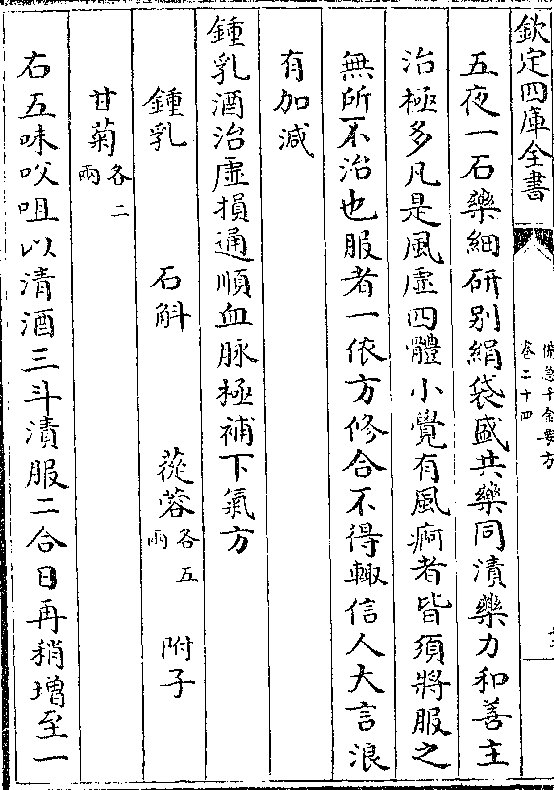 欽定四庫全書
備急千金要方
卷二十四
五夜一石藥細研别絹袋盛共藥同漬藥力和善主
治極多凡是風虛四體小覺有風痾者皆須將服之
無所不治也服者一依方修合不得輙信人大言浪
有加減
鍾乳酒治虛損通順血脉極補下氣方
鍾乳 石斛 蓯蓉各五兩 附子
甘菊各二兩
右五味㕮咀以清酒三斗漬服二合日再稍增至一